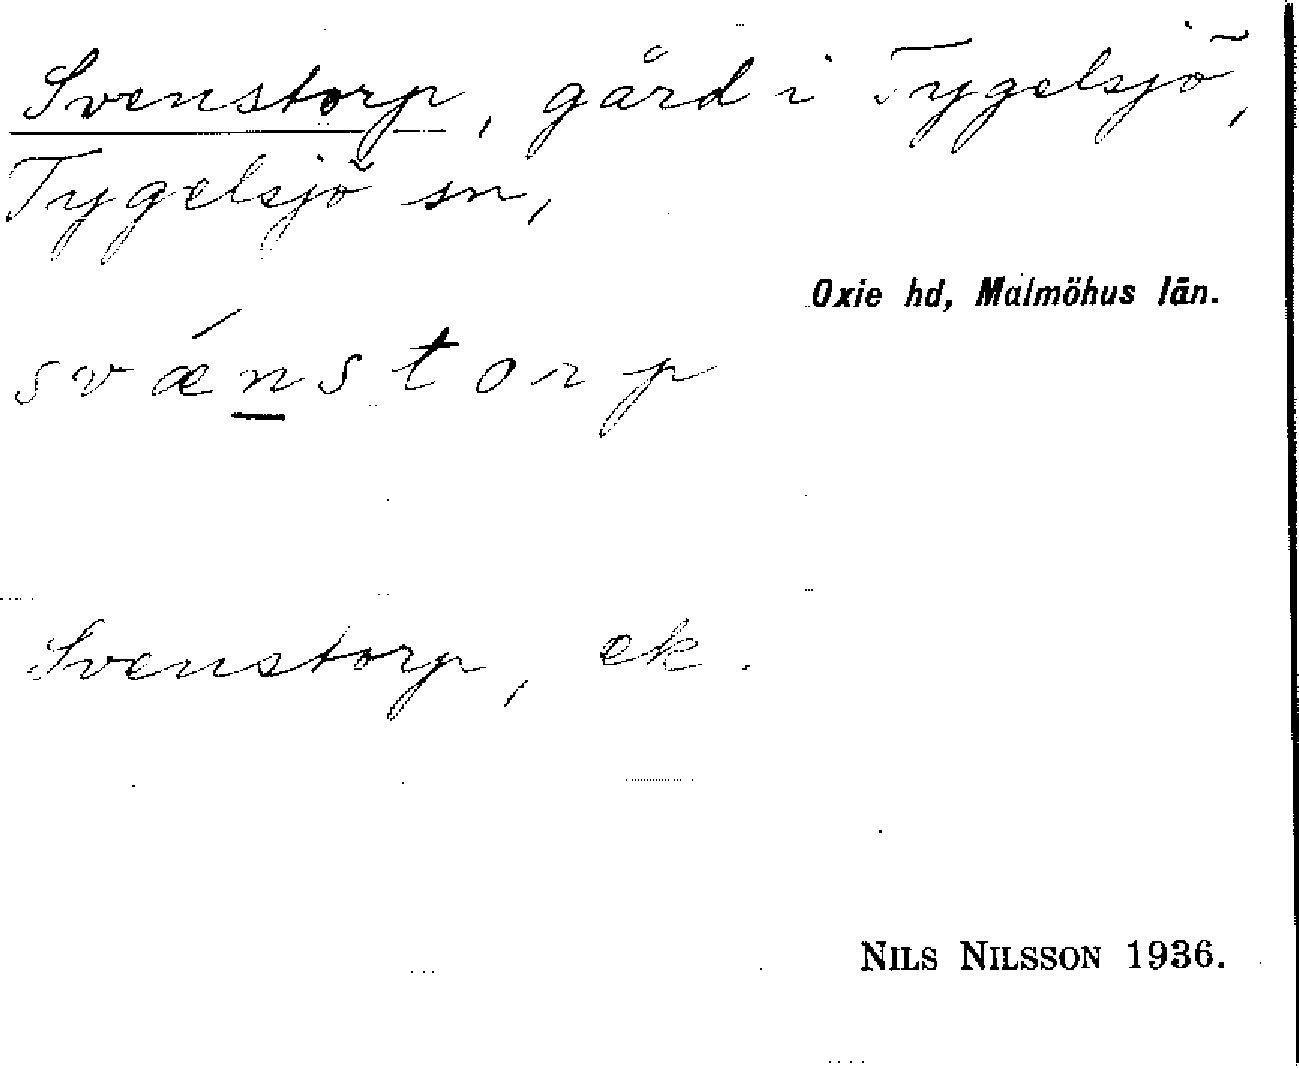 Svenstorp, gård i Tygelsjö,
Tygelsjö sn,
Oxie hd, Malmöhus län.
svǽn̲storp
Svenstorp, ek.
NILS NILSSON 1936.